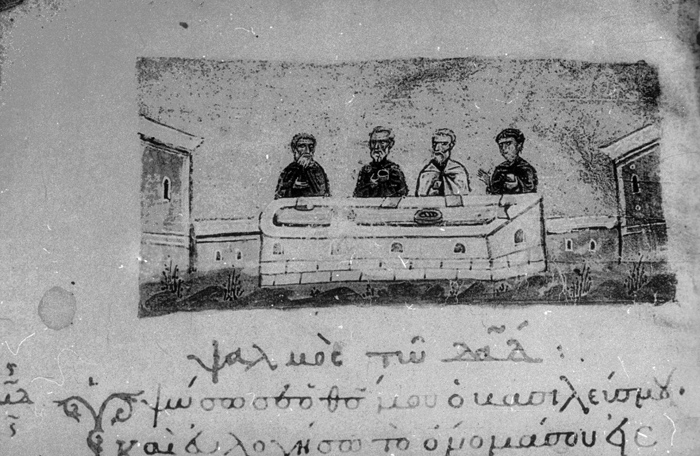 ψαλμὸς τῶ δα̅δ :
Ὑψώσω σε ὁ θ̅ς̅ μου ὁ βασιλεύς μου.
καὶ εὐλογήσω τὸ ὄνομά σου